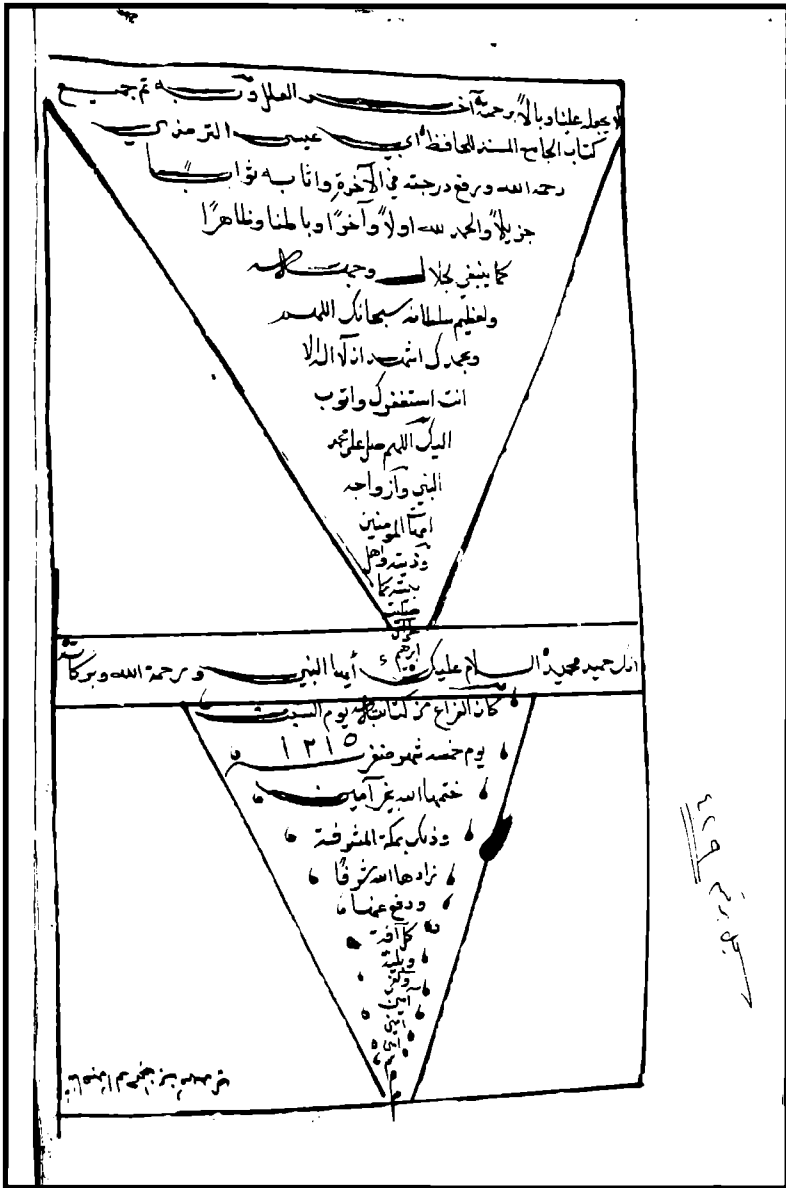 لا يجعله علينا وبالاً برحمته آخر العلل وبه تم جميع
كتاب الجامع المسند للحافظ أبي عيسى الترمذي
رحمه الله ورفع درجته في الآخرة واثابه ثوابا
جزيلاً والحمد لله اولاً وآخرًا وباطنا وظاهرًا
كما ينبغي لجلال وجهه
ولعظيم سلطانه سبحانك اللهم
وبحمدك اشهد ان لا اله الا
انت استغفرك واتوب
اليك اللهم صل على محمد
النبي وازواجه
امهات المومنين
وذريته واهل
بيته كما
صليت
على آل
ابرهيم
انك حميد مجيد السلام عليك أيها النبي ورحمة الله وبركاته
كان الفراغ من كتابته يوم السبت
يوم خمسه شهر صفر ١٢١٥
ختمها الله بخير آمين
وذلك بمكة المشرفة
زادها الله شرفًا
ودفع عنها
كل آفة
وبلية
آمين
آمين
سجل برقم ٤٢٩